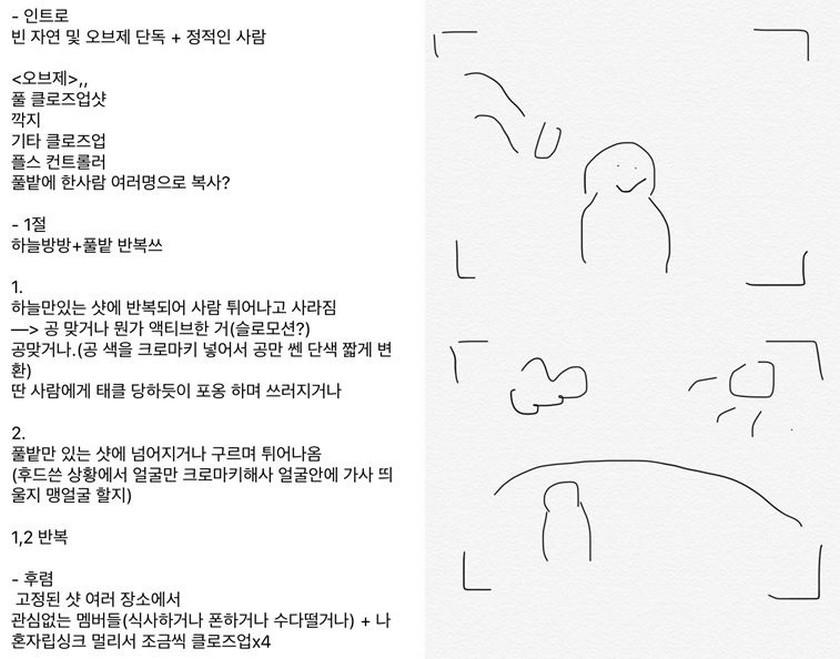 - 인트로
빈 자연 및 오브제 단독 + 정적인 사람
<오브제>,,
풀 클로즈업샷
깍지
기타 클로즈업
플스 컨트롤러
풀밭에 한사람 여러명으로 복사?
- 1절
하늘방방+풀밭 반복쓰
1.
하늘만있는 샷에 반복되어 사람 튀어나고 사라짐
—> 공 맞거나 뭔가 액티브한 거(슬로모션?)
공맞거나.(공 색을 크로마키 넣어서 공만 쎈 단색 짧게 변
환)
딴 사람에게 태클 당하듯이 포옹 하며 쓰러지거나
2.
풀밭만 있는 샷에 넘어지거나 구르며 튀어나옴
(후드쓴 상황에서 얼굴만 크로마키해사 얼굴안에 가사 띄
울지 맹얼굴 할지)
1,2 반복
- 후렴
고정된 샷 여러 장소에서
관심없는 멤버들(식사하거나 폰하거나 수다떨거나) + 나
혼자립싱크 멀리서 조금씩 클로즈업x4